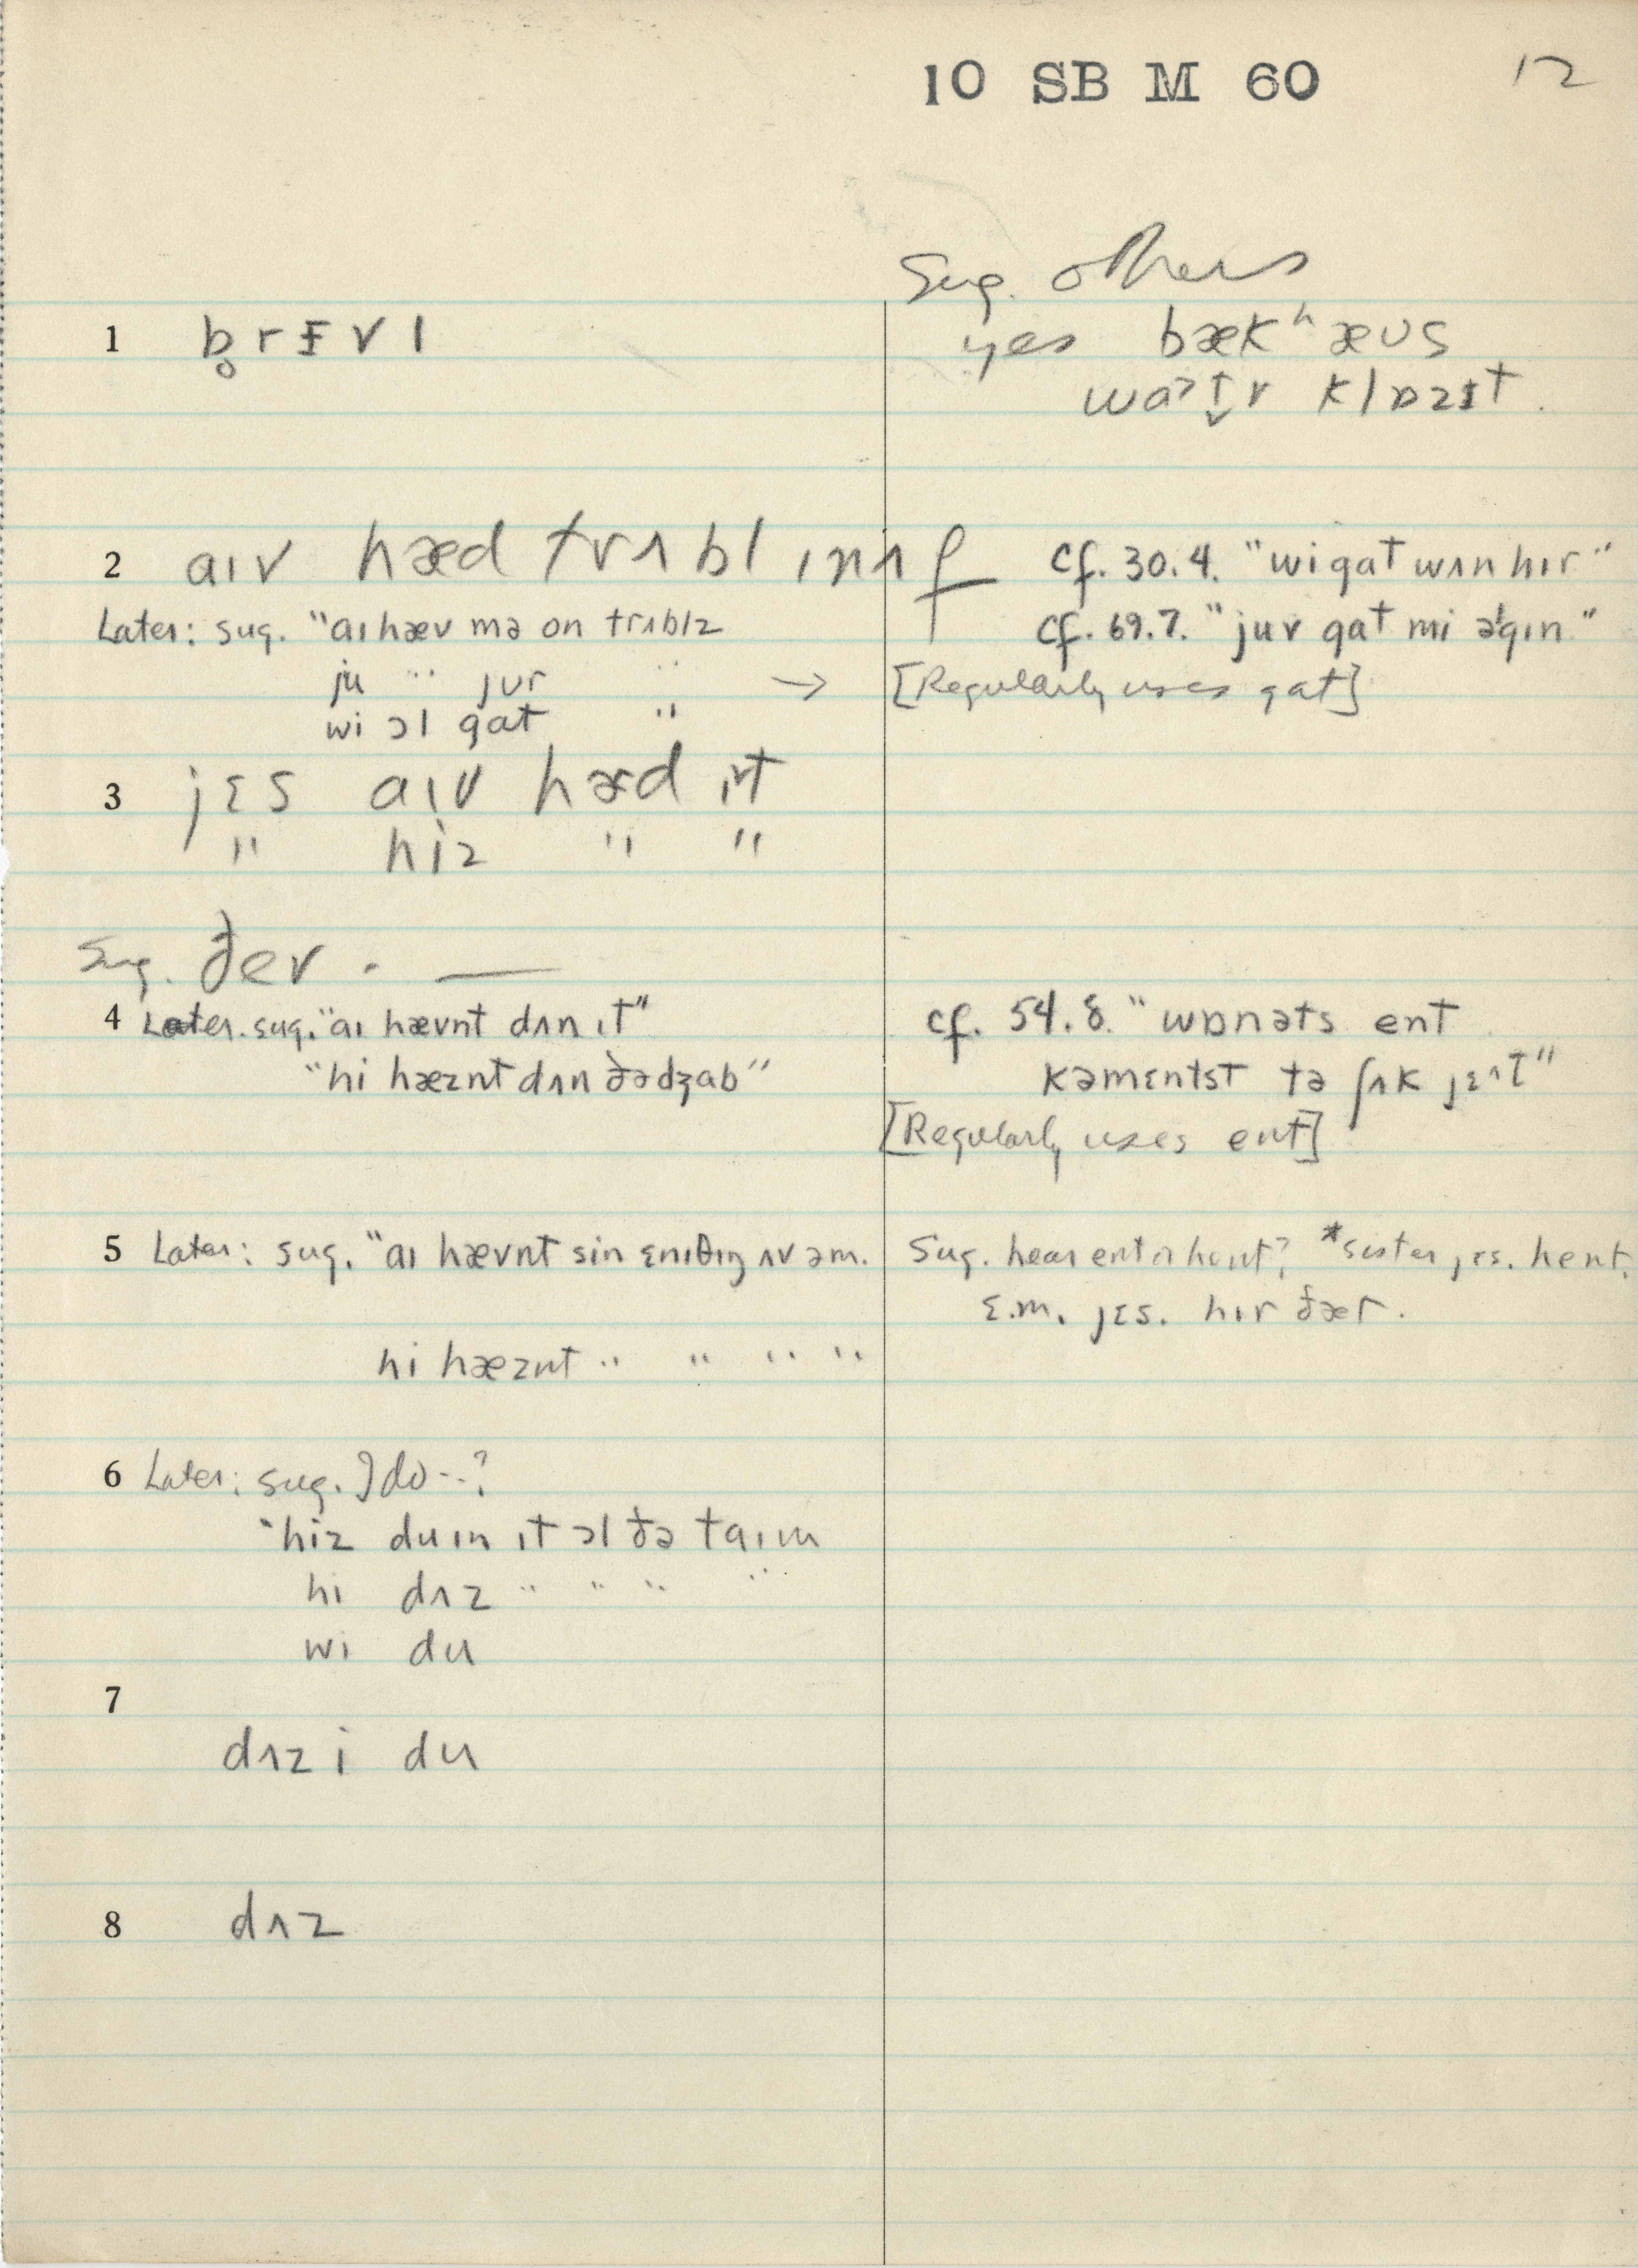 10 SB M 60
12
Sug. others
1 b̥rɪ̵vl
yes bækʰæʊs
waɂt̬r klɒzɪt.
2 aɪv hæd trʌbl ɪnʌf
cf. 30.4. "wi gat wʌn hɪr"
Later: sug. "aɪ hæv mə on trʌblz
cf. 69.7. "jur gat mi əˈgɪn"
ju " jur "
→ [Regularly uses gat]
wi ɔl gat "
3 jɛs aɪv hæd ɪt
" hiz " "
Sug. ðer. —
4 Later. sug. "aɪ hævnt dʌn ɪt"
cf. 54.8. "wɒnəts ent
"hi hæznt dʌn ðə dʒab"
kəmɛntst tə ʃʌk jɛᶺt"
[Regularly uses ent]
5 Later: sug. "aɪ hævnt sin ɛnɪθɪŋ ʌv əm.
Sug. hear ent or hent? *sister jɛs. hent.
ɛ.m. jɛs. hɪr ðær.
hi hæznt " " " "
6 Later: sug. I do--?
"hiz duɪn ɪt ɔl ðə taɪm
hi dʌz " " " "
wi du
7
dʌz i du
8 dʌz